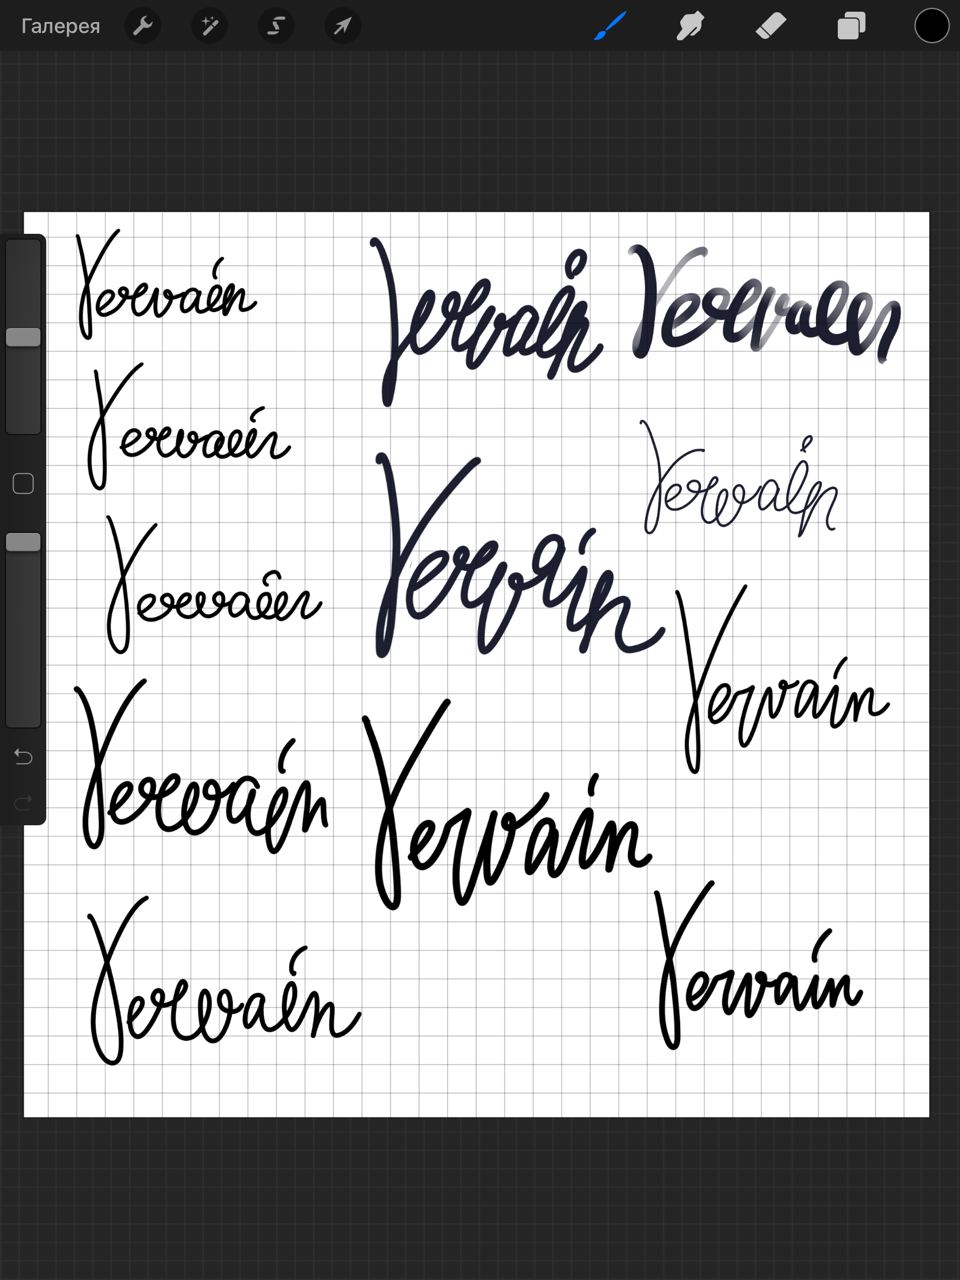 Галерея
Vervain
Vervain
Vervain
Vervain
Vervain
Vervain
Vervain
Vervain
Vervain
Vervain
Vervain
Vervain